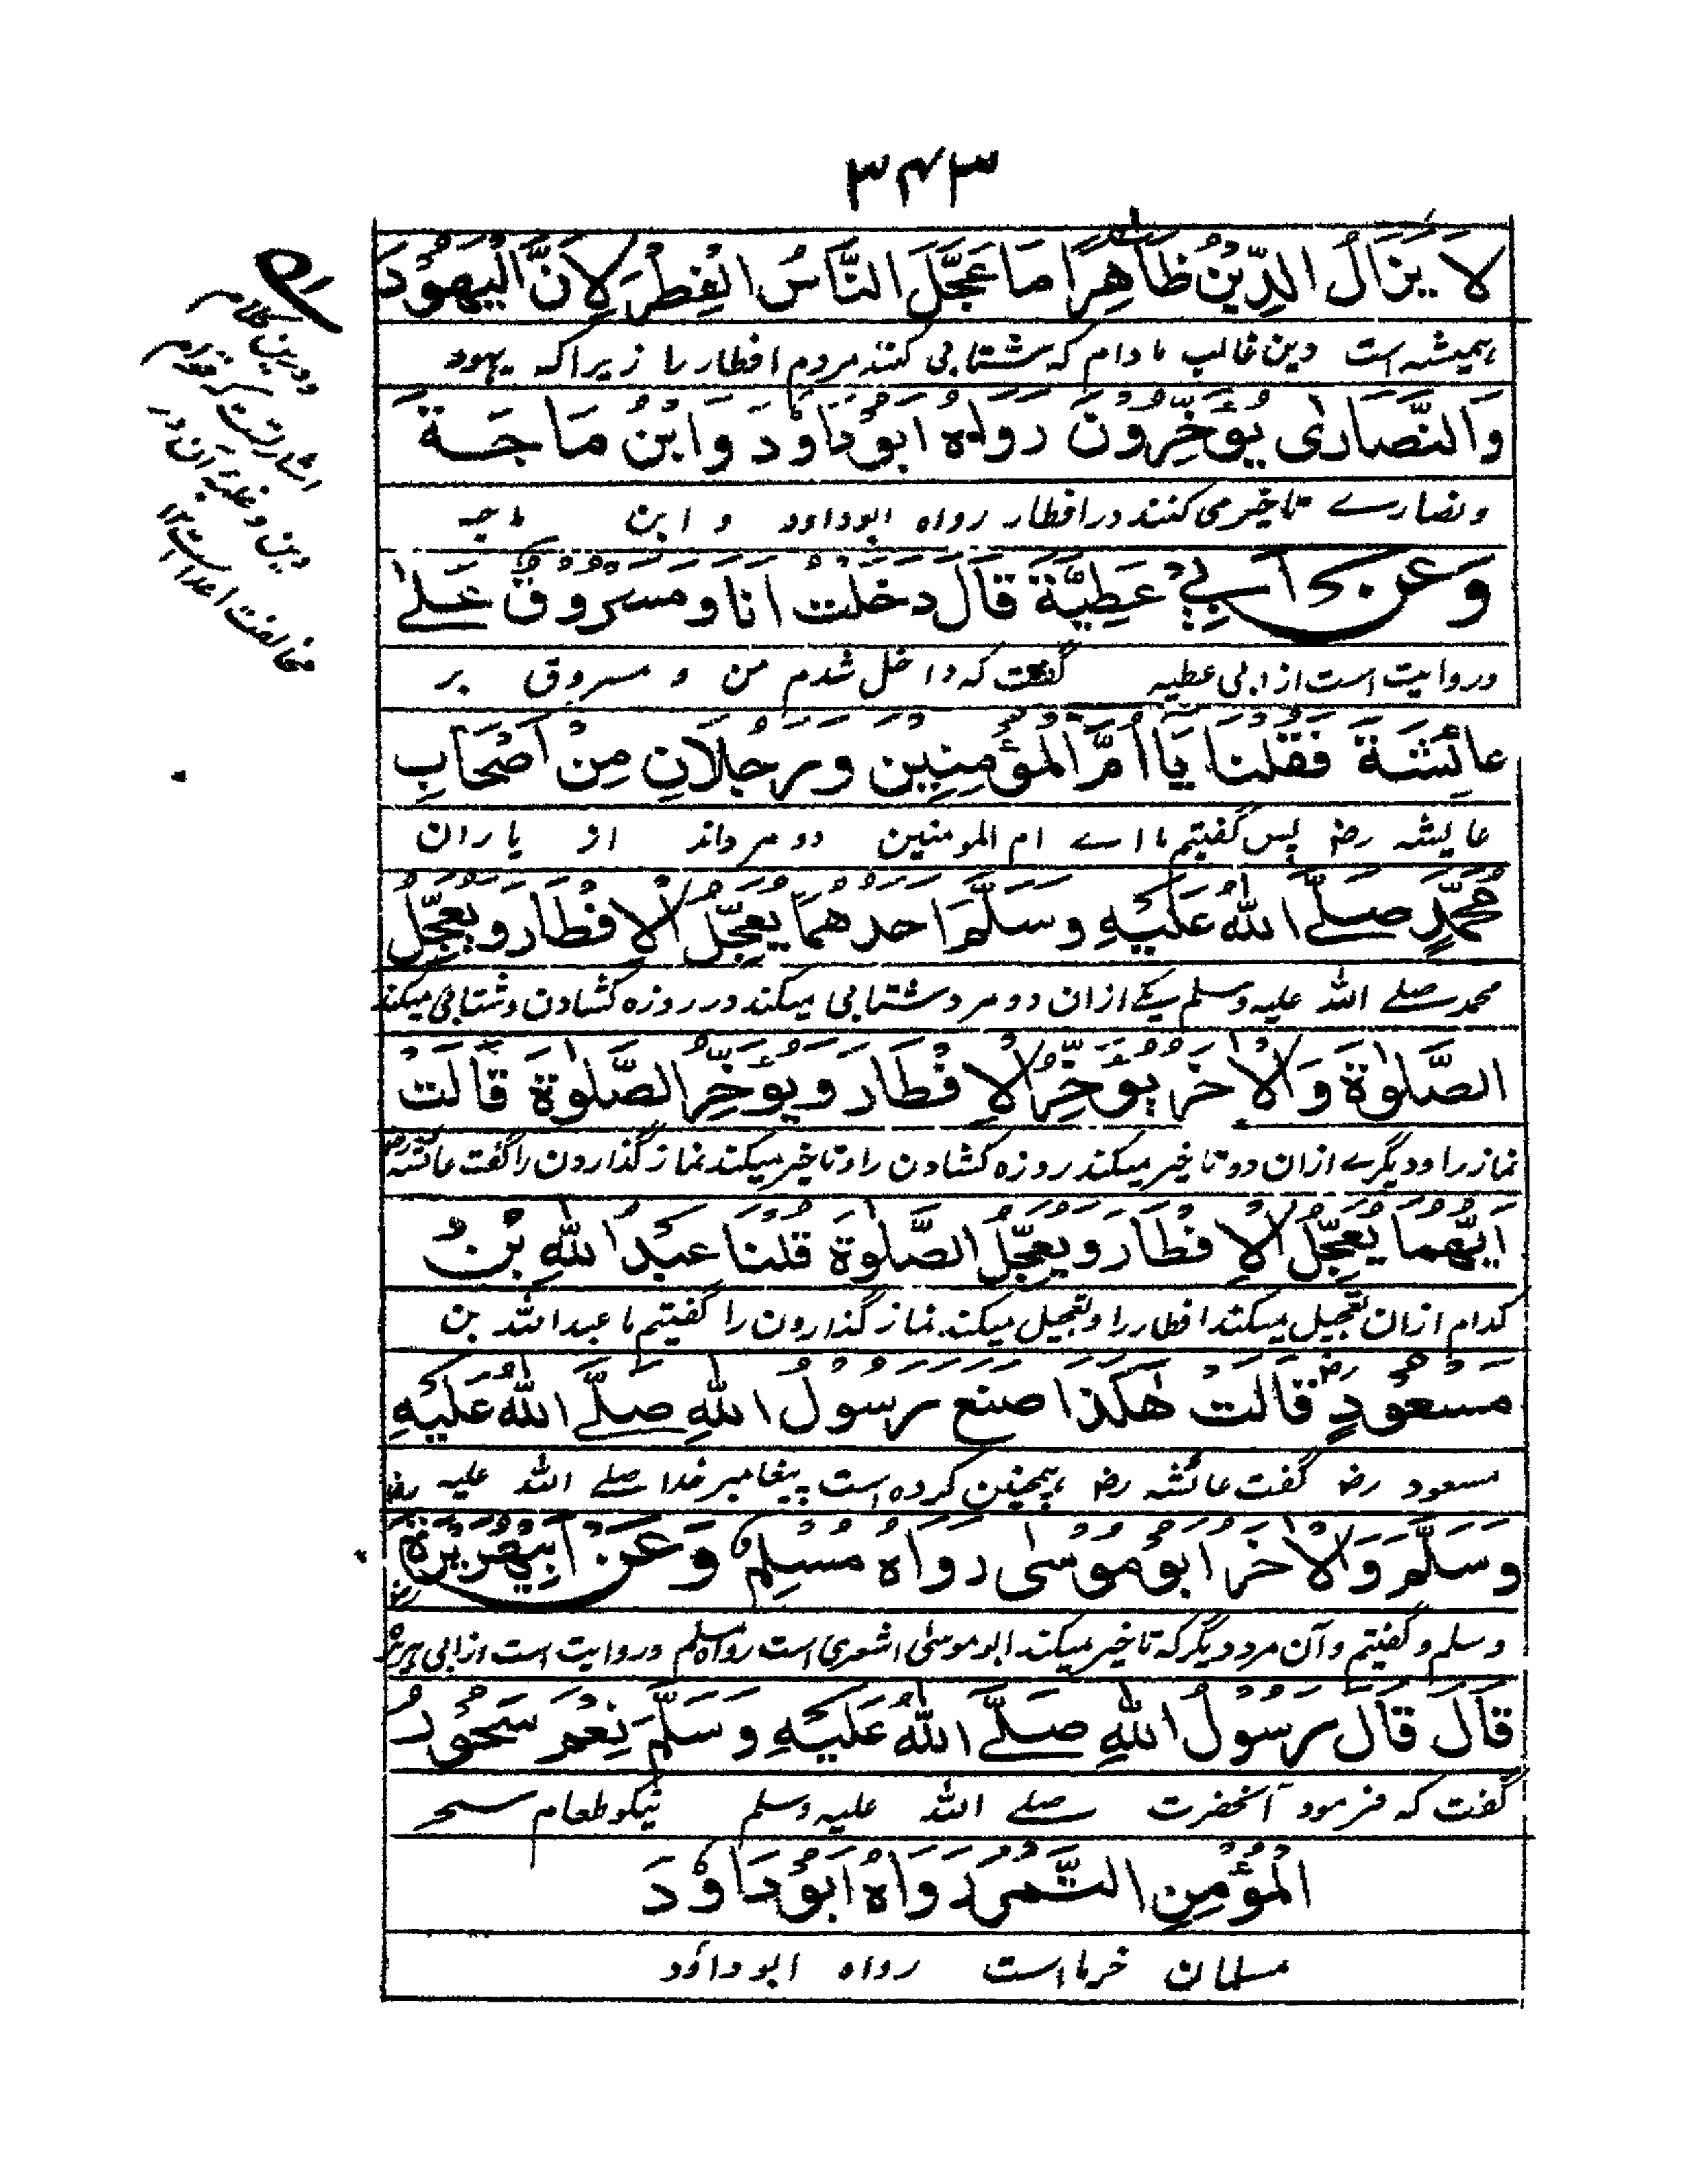 ۳۴۳
لَا يَزَالُ الدِّيْنُ ظَاهِرًا مَا عَجَّلَ النَّاسُ الْفِطْرَ لِاَنَّ الْيَهُوْدَ
همیشه است دین غالب مادام که شتابی کنند مردم افطار را زیراکه یهود
وَالنَّصَارٰى يُؤَخِّرُوْنَ رَوَاهُ اَبُوْدَاوٗدَ وَابْنُ مَاجَةَ
ونصارے تاخیر می کنند در افطار رواه ابوداود و ابن ماجه
وَعَنْ اَبِيْ عَطِيَّةَ قَالَ دَخَلْتُ اَنَا وَمَسْرُوْقٌ عَلٰى
وروایت است از ابی عطیه گفت که داخل شدم من و مسروق بر
عَائِشَةَ فَقُلْنَا يَا اُمَّ الْمُؤْمِنِيْنَ وَرَجُلَانِ مِنْ اَصْحَابِ
عایشه رض پس گفتیم ما اے ام المومنین دو مرداند از یاران
مُحَمَّدٍ صَلَّے اللّٰهُ عَلَيْهِ وَسَلَّمَ اَحَدُهُمَا يُعَجِّلُ الْاِفْطَارَ وَيُعَجِّلُ
محمد صلے الله علیه وسلم یکے ازان دو مرد شتابی میکند در روزه کشادن وشتابی میکند
الصَّلٰوةَ وَالْاٰخَرُ يُؤَخِّرُ الْاِفْطَارَ وَيُؤَخِّرُ الصَّلٰوةَ قَالَتْ
نماز را ودیگرے ازان دو تاخیر میکند روزه کشادن را وتاخیر میکند نماز گذاردن را گفت عائشه رض
اَيُّهُمَا يُعَجِّلُ الْاِفْطَارَ وَيُعَجِّلُ الصَّلٰوةَ قُلْنَا عَبْدُ اللّٰهِ بْنُ
کدام ازان تعجیل میکند افطار را وتعجیل میکند نماز گذاردن را گفتیم ما عبدالله بن
مَسْعُوْدٍ رض قَالَتْ هٰكَذَا صَنَعَ رَسُوْلُ اللّٰهِ صَلَّے اللّٰهُ عَلَيْهِ
مسعود رض گفت عائشه رض همچنین کرده است پیغامبر خدا صلے الله علیه
وَسَلَّمَ وَالْاٰخَرُ اَبُوْمُوْسٰى رَوَاهُ مُسْلِمٌ وَعَنْ اَبِيْهُرَيْرَةَ رض
وسلم وگفتیم وآن مرد دیگر که تاخیر میکند ابوموسیٰ اشعری است رواه مسلم وروایت است از ابی هریره
قَالَ قَالَ رَسُوْلُ اللّٰهِ صَلَّے اللّٰهُ عَلَيْهِ وَسَلَّمَ نِعْمَ سَحُوْرُ
گفت که فرمود آنحضرت صلے الله علیه وسلم نیکو طعام سحر
الْمُؤْمِنِ التَّمْرُ رَوَاهُ اَبُوْدَاوٗدَ
مسلمان خرما است رواه ابوداؤد
ودرین کلام
اشارتست که قوام
دین وغلبه آن در
مخالفت اعدا است ۱۲